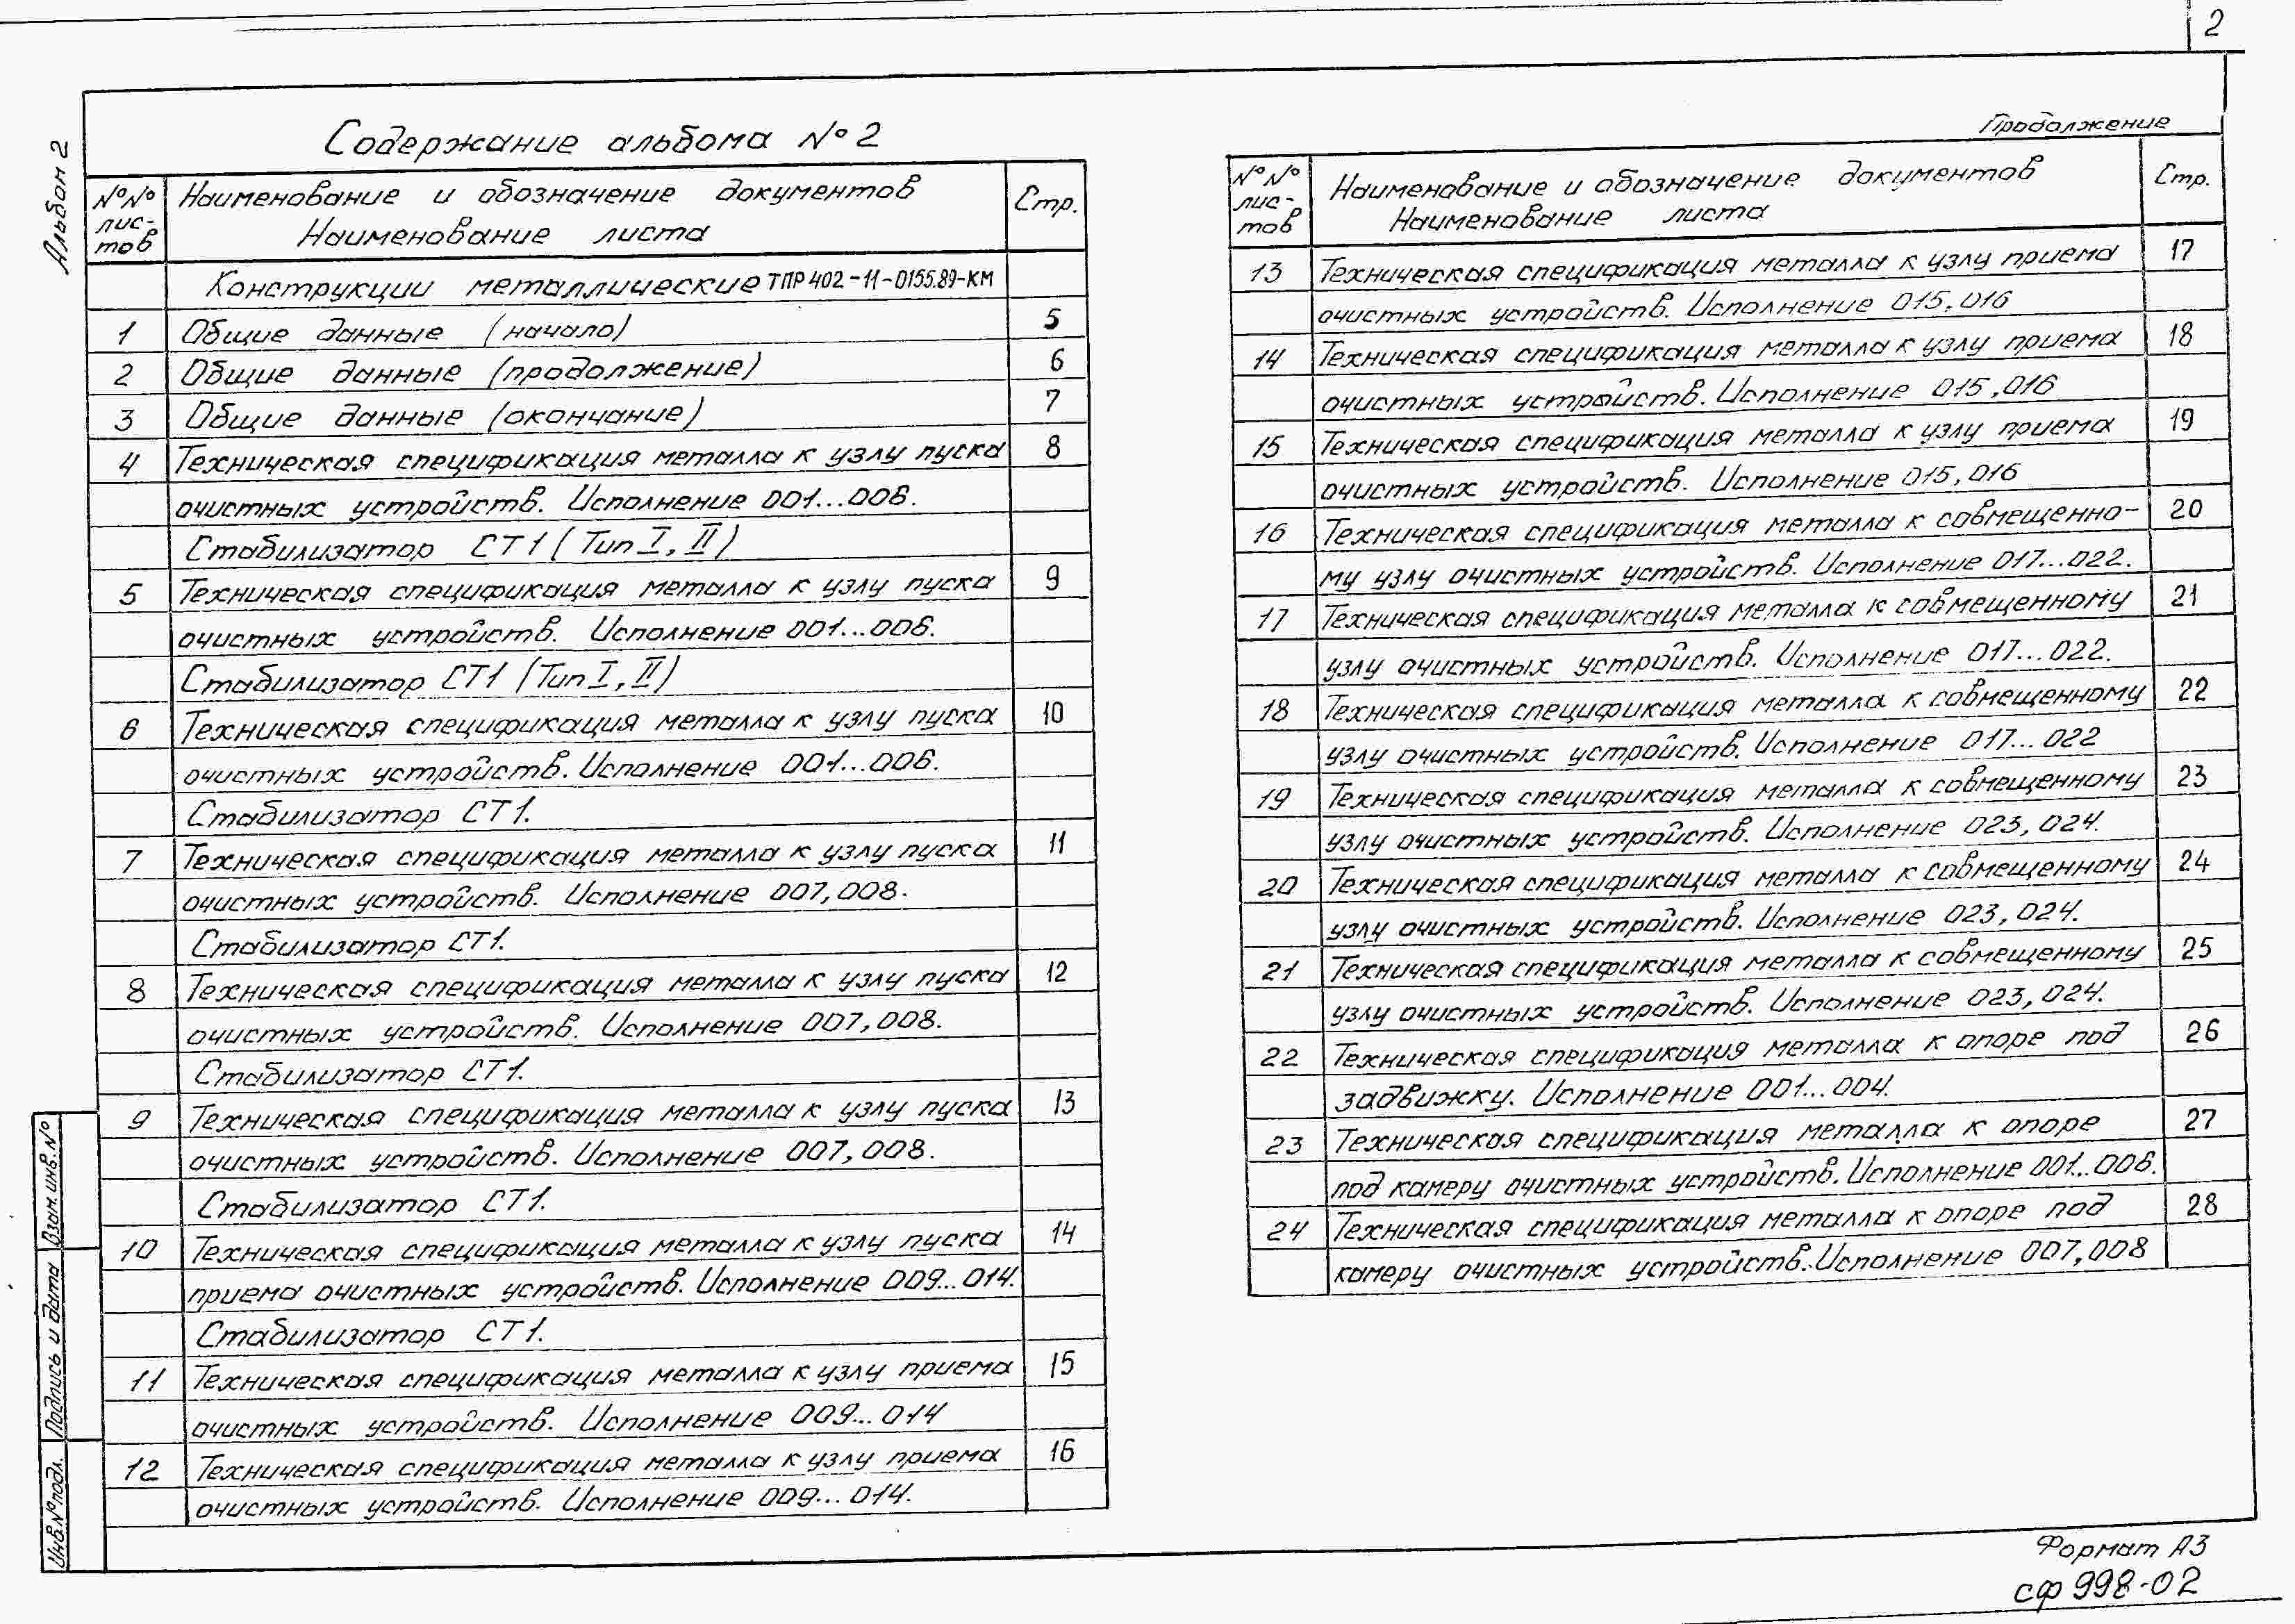 2
Альбом 2
Содержание альбома №2
№№ лис-тов
Наименование и обозначение документов
Наименование листа
Стр.
Конструкции металлические ТПР 402-11-0155.89-КМ
1 Общие данные (начало) 5
2 Общие данные (продолжение) 6
3 Общие данные (окончание) 7
4 Техническая спецификация металла к узлу пуска 8
очистных устройств. Исполнение 001...006.
Стабилизатор СТ1 (Тип I, II)
5 Техническая спецификация металла к узлу пуска 9
очистных устройств. Исполнение 001...006.
Стабилизатор СТ1 (Тип I, II)
6 Техническая спецификация металла к узлу пуска 10
очистных устройств. Исполнение 001...006.
Стабилизатор СТ1.
7 Техническая спецификация металла к узлу пуска 11
очистных устройств. Исполнение 007, 008.
Стабилизатор СТ1.
8 Техническая спецификация металла к узлу пуска 12
очистных устройств. Исполнение 007, 008.
Стабилизатор СТ1.
9 Техническая спецификация металла к узлу пуска 13
очистных устройств. Исполнение 007, 008.
Стабилизатор СТ1.
10 Техническая спецификация металла к узлу пуска 14
приема очистных устройств. Исполнение 009...014.
Стабилизатор СТ1.
11 Техническая спецификация металла к узлу приема 15
очистных устройств. Исполнение 009...014
12 Техническая спецификация металла к узлу приема 16
очистных устройств. Исполнение 009...014.
Продолжение
№№ лис-тов
Наименование и обозначение документов
Наименование листа
Стр.
13 Техническая спецификация металла к узлу приема 17
очистных устройств. Исполнение 015, 016
14 Техническая спецификация металла к узлу приема 18
очистных устройств. Исполнение 015, 016
15 Техническая спецификация металла к узлу приема 19
очистных устройств. Исполнение 015, 016
16 Техническая спецификация металла к совмещенно- 20
му узлу очистных устройств. Исполнение 017...022.
17 Техническая спецификация металла к совмещенному 21
узлу очистных устройств. Исполнение 017...022.
18 Техническая спецификация металла к совмещенному 22
узлу очистных устройств. Исполнение 017...022
19 Техническая спецификация металла к совмещенному 23
узлу очистных устройств. Исполнение 023, 024.
20 Техническая спецификация металла к совмещенному 24
узлу очистных устройств. Исполнение 023, 024.
21 Техническая спецификация металла к совмещенному 25
узлу очистных устройств. Исполнение 023, 024.
22 Техническая спецификация металла к опоре под 26
задвижку. Исполнение 001...004.
23 Техническая спецификация металла к опоре 27
под камеру очистных устройств. Исполнение 001...006.
24 Техническая спецификация металла к опоре под 28
камеру очистных устройств. Исполнение 007, 008
Взам. инв. №
Подпись и дата
Инв. № подл.
Формат А3
сф 998-02